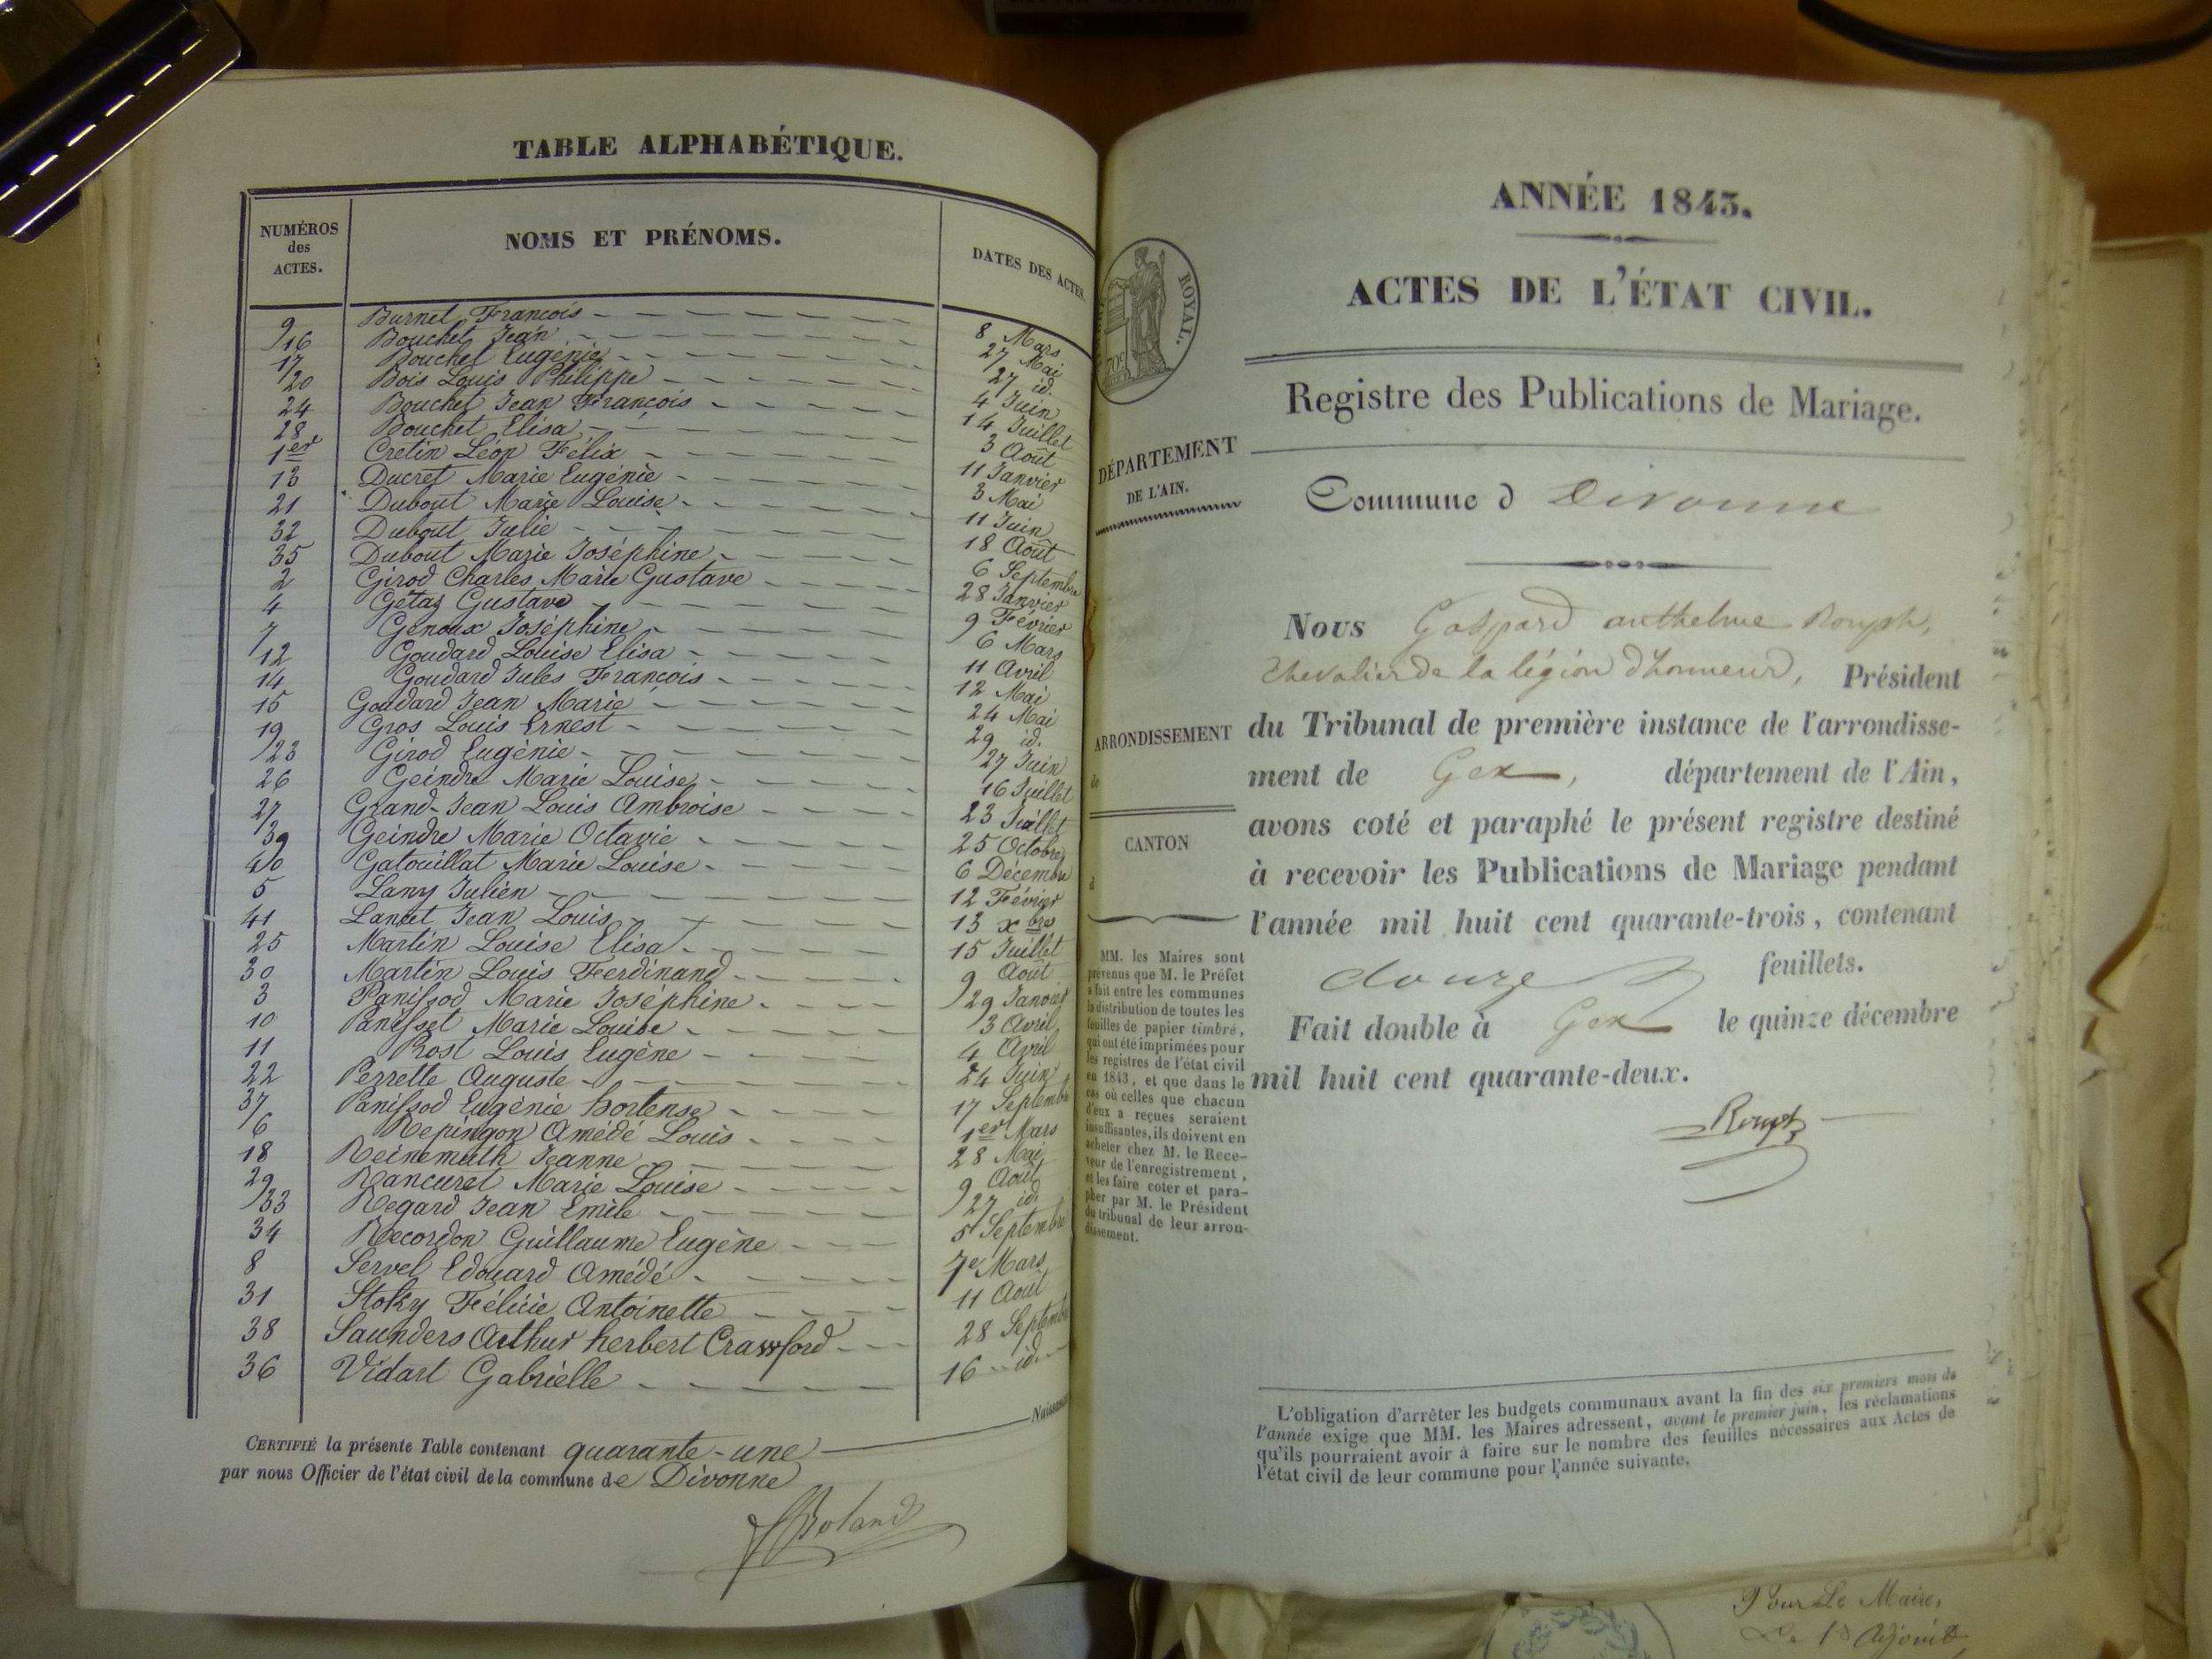 TABLE ALPHABÉTIQUE.
NUMÉROS des ACTES. NOMS ET PRÉNOMS. DATES DES ACTES.
9 Burnet François 8 Mars
16 Bouchet Jean 27 Mai
17 Bouchet Eugénie 27 id.
20 Bois Louis Philippe 4 Juin
24 Bouchet Jean François 14 Juillet
28 Bouchet Elisa 3 Août
1er Cretin Léon Félix 11 Janvier
13 Ducret Marie Eugénie 3 Mai
21 Dubout Marie Louise 11 Juin
32 Dubout Julie 18 Août
35 Dubout Marie Joséphine 6 Septembre
2 Girod Charles Marie Gustave 28 Janvier
4 Gétaz Gustave 9 Février
7 Genoux Joséphine 6 Mars
12 Goudard Louise Elisa 11 Avril
14 Goudard Jules François 12 Mai
15 Goudard Jean Marie 24 Mai
19 Gros Louis Ernest 29 id.
23 Girod Eugénie 27 Juin
26 Geindre Marie Louise 16 Juillet
27 Grand-Jean Louis Ambroise 23 Juillet
39 Geindre Marie Octavie 25 Octobre
40 Gatouillat Marie Louise 6 Décembre
5 Lany Julien 12 Février
41 Lancet Jean Louis 13 xbre
25 Martin Louise Elisa 15 Juillet
30 Martin Louis Ferdinand 9 Août
3 Panissod Marie Joséphine 29 Janvier
10 Panisset Marie Louise 3 Avril
11 Prost Louis Eugène 4 Avril
22 Perrette Auguste 24 Juin
37 Panissod Eugénie hortense 17 Septembre
6 Repingon Amédé Louis 1er Mars
18 Reinemuth Jeanne 28 Mai
29 Rancuret Marie Louise 9 Août
33 Regard Jean Emile 27 id.
34 Recordon Guillaume Eugène 5 Septembre
8 Servel Edouard Amédé 7e Mars
31 Stoky Félicie Antoinette 11 Août
38 Saunders Arthur herbert Crawford 28 Septembre
36 Vidart Gabrielle 16 id.
CERTIFIÉ la présente Table contenant quarante-une
par nous Officier de l'état civil de la commune de Divonne
Roland
ROYAL.
ANNÉE 1843.
ACTES DE L'ÉTAT CIVIL.
Registre des Publications de Mariage.
DÉPARTEMENT
DE L'AIN.
ARRONDISSEMENT
de
CANTON
d
MM. les Maires sont
prévenus que M. le Préfet
a fait entre les communes
la distribution de toutes les
feuilles de papier timbré,
qui ont été imprimées pour
les registres de l'état civil
en 1843, et que dans le
cas où celles que chacun
d'eux a reçues seraient
insuffisantes, ils doivent en
acheter chez M. le Rece-
veur de l'enregistrement,
et les faire coter et para-
pher par M. le Président
du tribunal de leur arron-
dissement.
Commune d Divonne
Nous Gaspard anthelme Rouph,
chevalier de la légion d'honneur, Président
du Tribunal de première instance de l'arrondisse-
ment de Gex, département de l'Ain,
avons coté et paraphé le présent registre destiné
à recevoir les Publications de Mariage pendant
l'année mil huit cent quarante-trois, contenant
douze feuillets.
Fait double à Gex le quinze décembre
mil huit cent quarante-deux.
L'obligation d'arrêter les budgets communaux avant la fin des six premiers mois de
l'année exige que MM. les Maires adressent, avant le premier juin, les réclamations
qu'ils pourraient avoir à faire sur le nombre des feuilles nécessaires aux Actes de
l'état civil de leur commune pour l'année suivante.
Pour Le Maire,